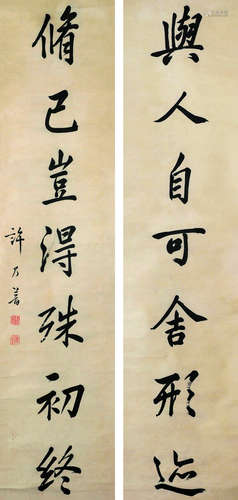 與人自可舍形迹
脩己豈得殊初終
許乃普